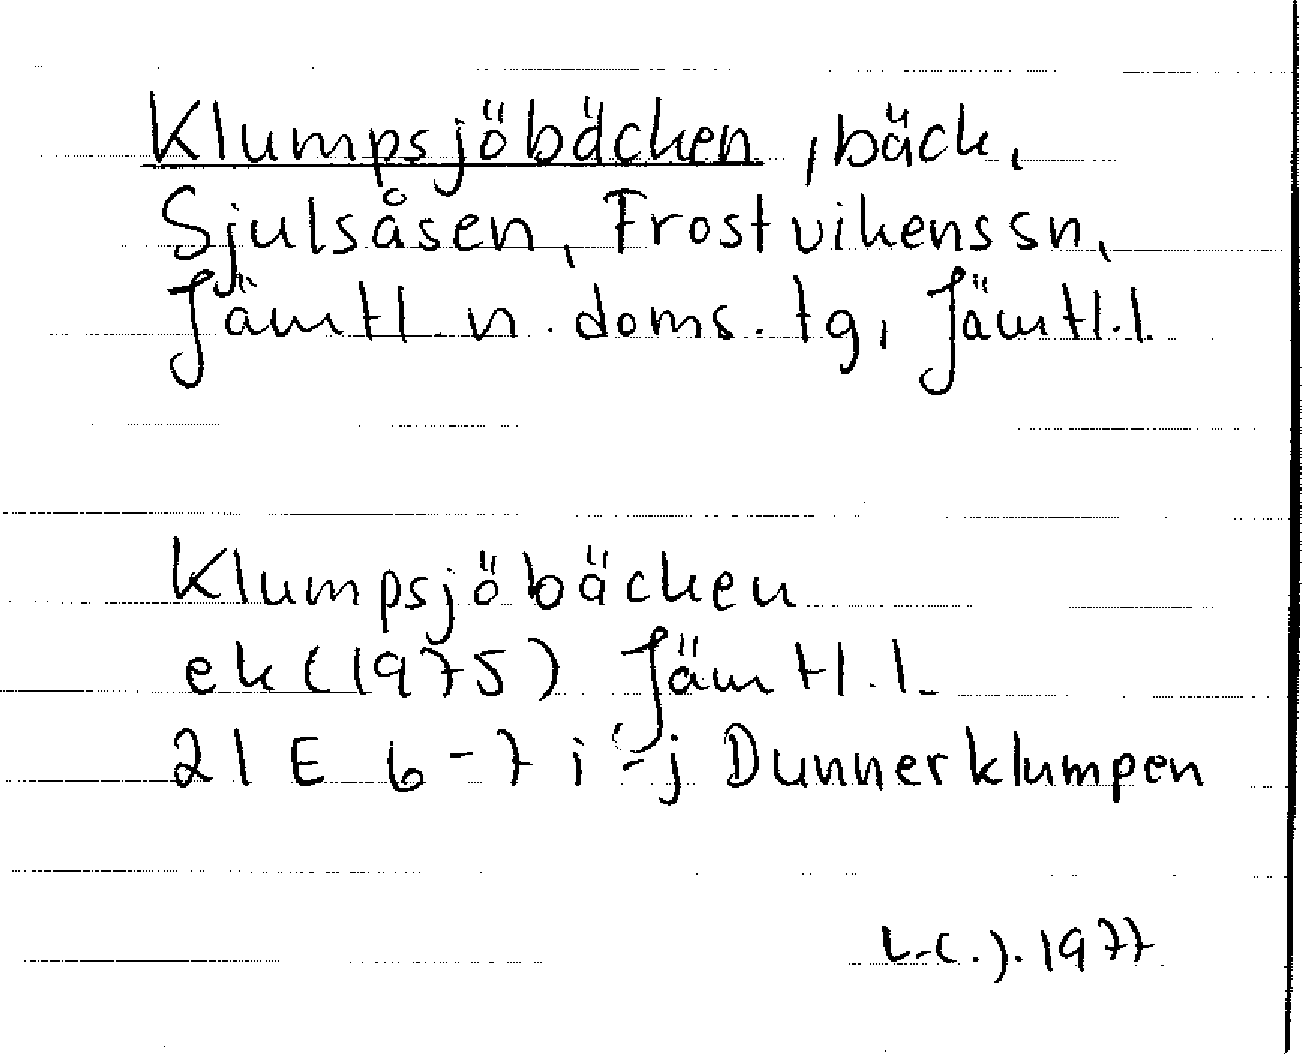 Klumpsjöbäcken, bäck,
Sjulsåsen, Frostvikens sn,
Jämtl n. doms. tg, Jämtl. l.
Klumpsjöbäcken
ek (1975) Jämtl. l.
21 E 6-7 i-j Dunnerklumpen
1977